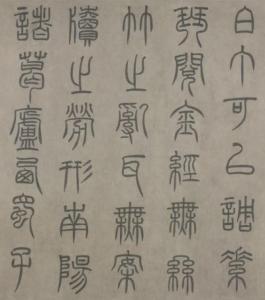 白丁可以調素
琴閱金經無絲
竹之亂耳無案
牘之勞形南陽
諸葛廬西蜀子